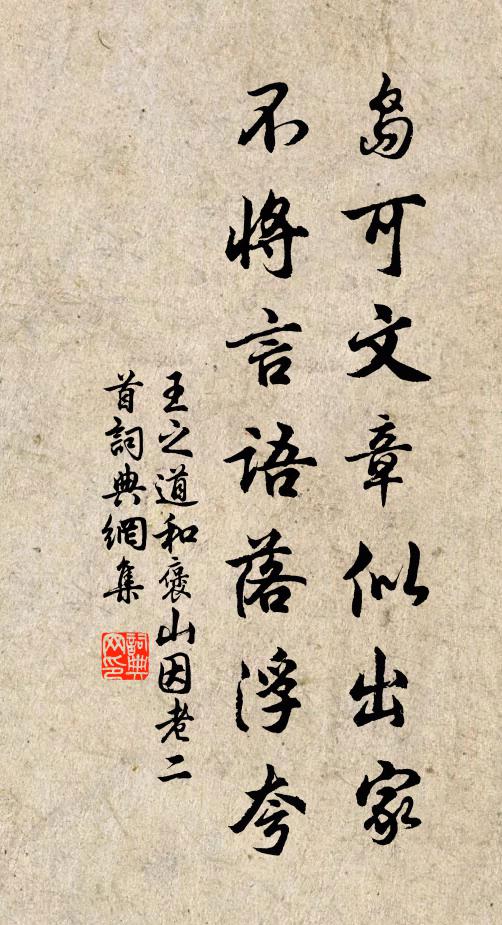 島可文章似出家
不將言語落浮夸
王之道和褒山因老二
首詞典網集
詞典
网印